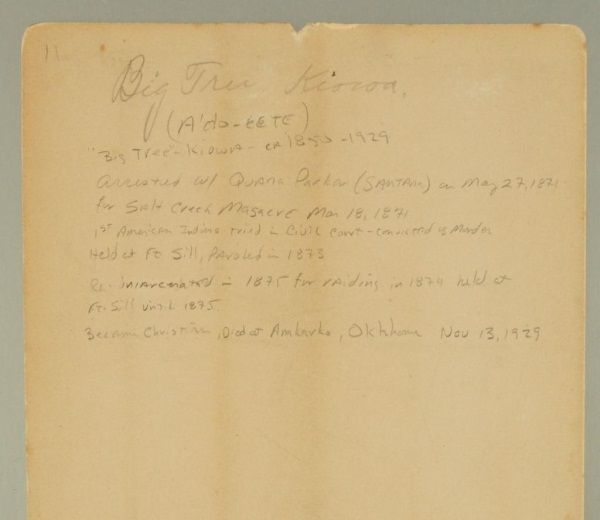 11
Big Tree Kiowa.
(A'do-EETE)
"Big Tree"-Kiowa - ca 1850 -1929
Arrested w/ Quana Parker (SANTANA) on May 27, 1871
for Salt Creek Massacre Mar 18, 1871
1st American Indians tried in Civil Court - convicted of Murder
Held at Ft Sill, Paroled in 1873
Re-incarcerated in 1875 for raiding in 1874 held at
Ft. Sill until 1875.
Became Christian, Died at Andarko, Oklahoma Nov 13, 1929